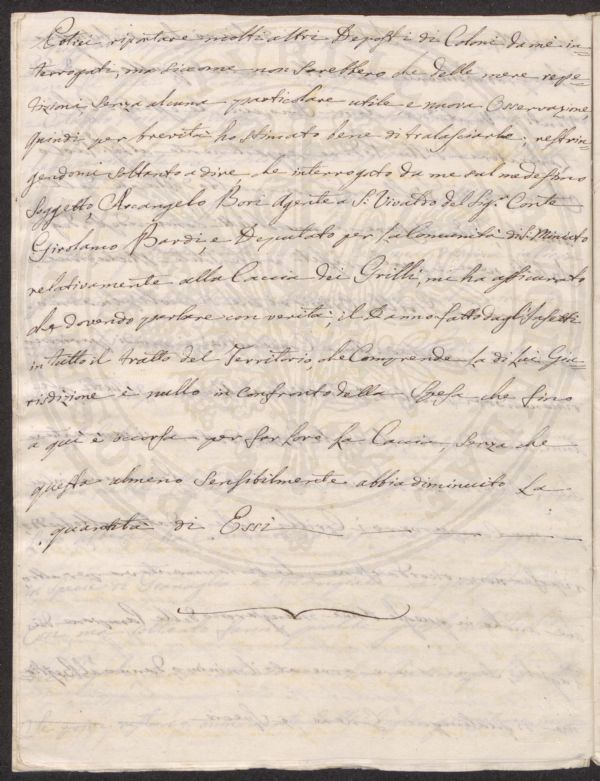 Potrei riportare molti altri Deposti di Coloni da me in=
terrogati, ma siccome non sarebbero che delle mere repe=
tizioni, senza alcuna particolare utile, e nuova Osservazione,
quindi per brevità ho stimato bene di tralasciarle; restrin=
gendomi soltanto a dire, che interrogato da me sul medesimo
Soggetto, Arcangelo Bori Agente a S. Vivaldo del Sig.r Conte
Girolamo Bardi, e Deputato per la Comunità di S. Miniato
relativamente alla Caccia dei Grilli, mi ha assicurato
che dovendo parlare con verità, il Danno fatto dagl'Insetti
in tutto il tratto del Territorio, che Comprende la di Lui Giu=
risdizione è nullo in confronto della Spesa che fino
a quì è occorsa per far Loro la Caccia, senza che
questa almeno sensibilmente abbia diminuito la
quantità di Essi